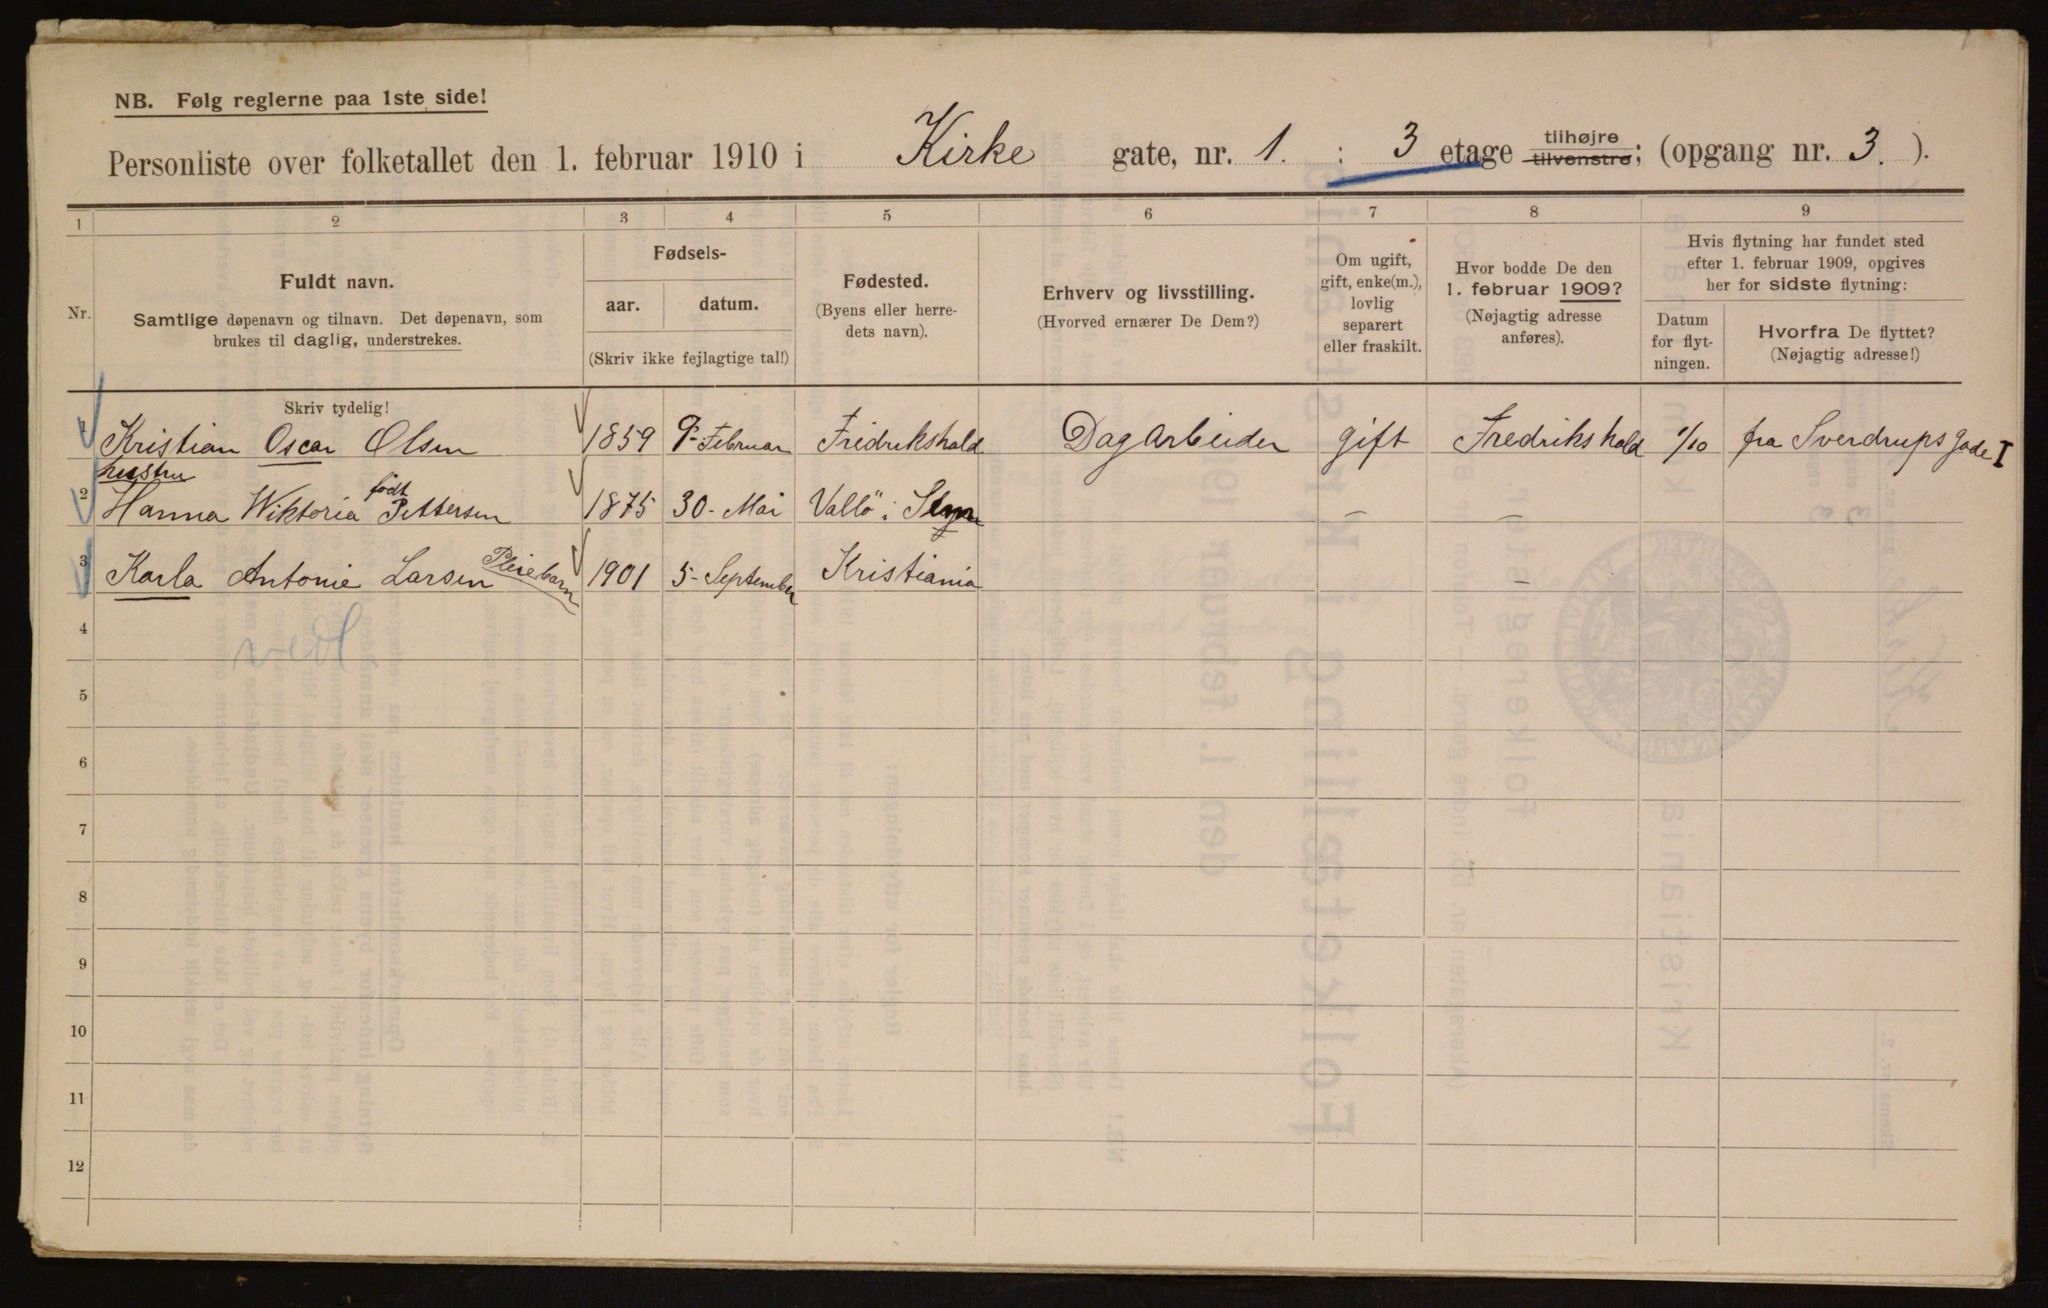 NB. Følg reglerne paa 1ste side!
Personliste over folketallet den 1. februar 1910 i Kirke gate, nr. 1. : 3 etage tilhøjre tilvenstre; (opgang nr. 3. ).
1 2 3 4 5 6 7 8 9
Nr.
Fuldt navn.
Samtlige døpenavn og tilnavn. Det døpenavn, som
brukes til daglig, understrekes.
Fødsels-
aar. datum.
(Skriv ikke fejlagtige tal!)
Fødested.
(Byens eller herre-
dets navn).
Erhverv og livsstilling.
(Hvorved ernærer De Dem?)
Om ugift,
gift, enke(m.),
lovlig
separert
eller fraskilt.
Hvor bodde De den
1. februar 1909?
(Nøjagtig adresse
anføres).
Hvis flytning har fundet sted
efter 1. februar 1909, opgives
her for sidste flytning:
Datum
for flyt-
ningen.
Hvorfra De flyttet?
(Nøjagtig adresse!)
Skriv tydelig!
1 Kristian Oscar Olsen 1859 9- Februar Fredrikshald Dagarbeider gift Fredrikshald 1/10 fra Sverdrupsgade I
hustru
2 Hanna Wiktoria født Pettersen 1875 30- Mai Vallö i — —
3 Karla Antonie Larsen Pleiebarn 1901 5- September Kristiania —
4
5
6
7
8
9
10
11
12